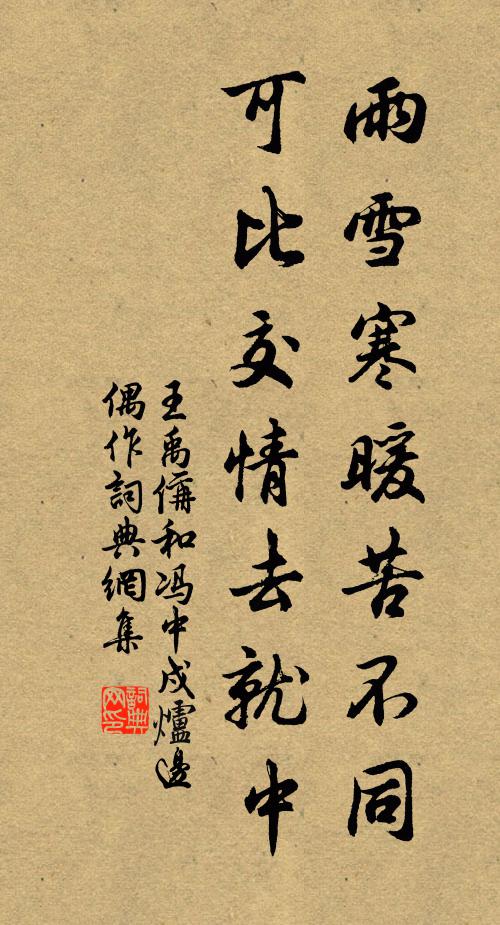 雨雪寒暖苦不同
可比交情去就中
王禹偁和冯中戍爐邊
偶作詞典網集
詞典
网印